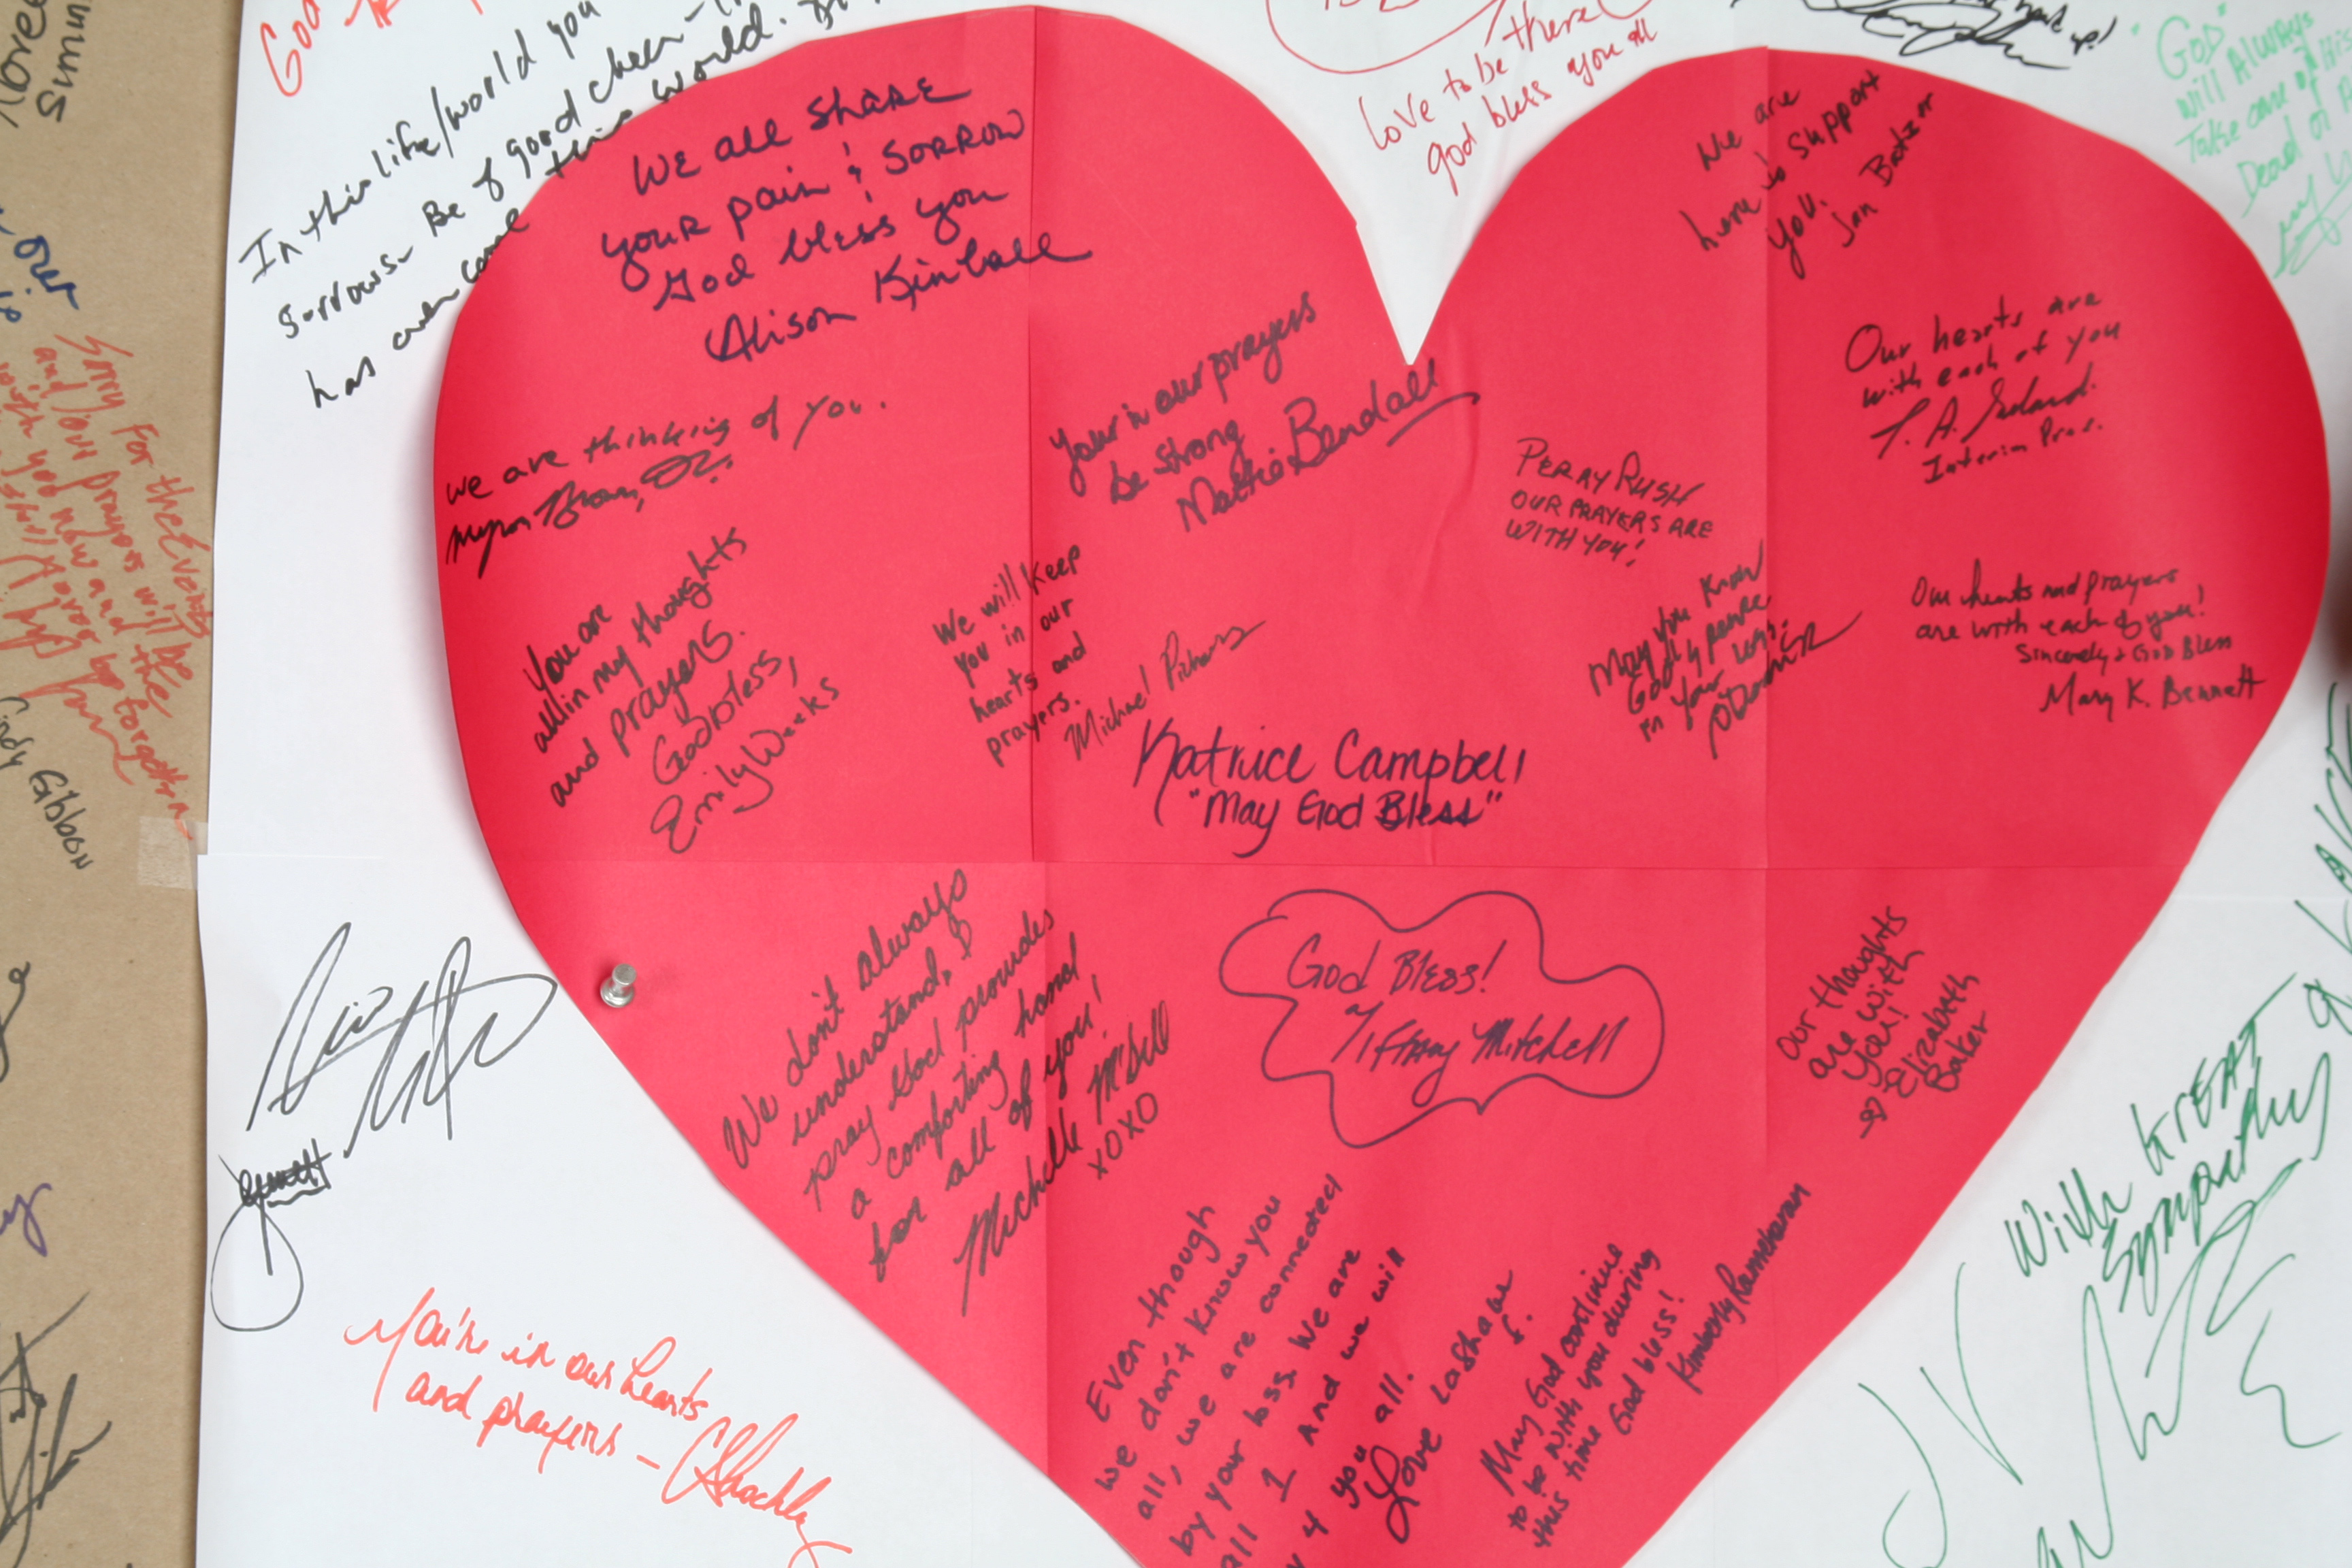 In this life/world you
sorrows. Be of good cheer-
has over come this world.
WE all SHARE
YOUR pain & SORROW
God bless you
Alison Kimball
Love to be there
god bless you all
We are
here to support
you.
Jan
"GOD"
will Always
Take care of
Dead or
Our hearts are
with each of you
Interim Pres.
we are thinking of you.
Myron Brown,
your in our prayers
be strong
Mattie Bendall
PERRY RUSH
OUR PRAYERS ARE
WITH YOU!
May you know
God's peace
in your loss.
Our hearts and prayers
are with each of you!
Sincerely & God Bless
Mary K. Bennett
You are
all in my thoughts
and prayers.
God bless,
Emily Weeks
We will keep
you in our
hearts and
prayers.
Michael
Katrice Campbell
"May God Bless"
Sorry For the Events
and our prayers will be
with you now and the
Cindy Gibbon
We don't always
understand, I
pray God provides
a comforting hand
for all of you!
Michelle
XOXO
God Bless!
Tiffany Mitchell
our thoughts
are with
you!
Elizabeth
Baker
With GREAT
Sympathy
You're in our hearts
and prayers -
Even though
we don't know you
all, we are connected
by your loss. We are
all 1 And we will
4 you all.
Love Lashawn
S.
May God continue
to be with you during
this time God bless!
Kimberly Ramcharan